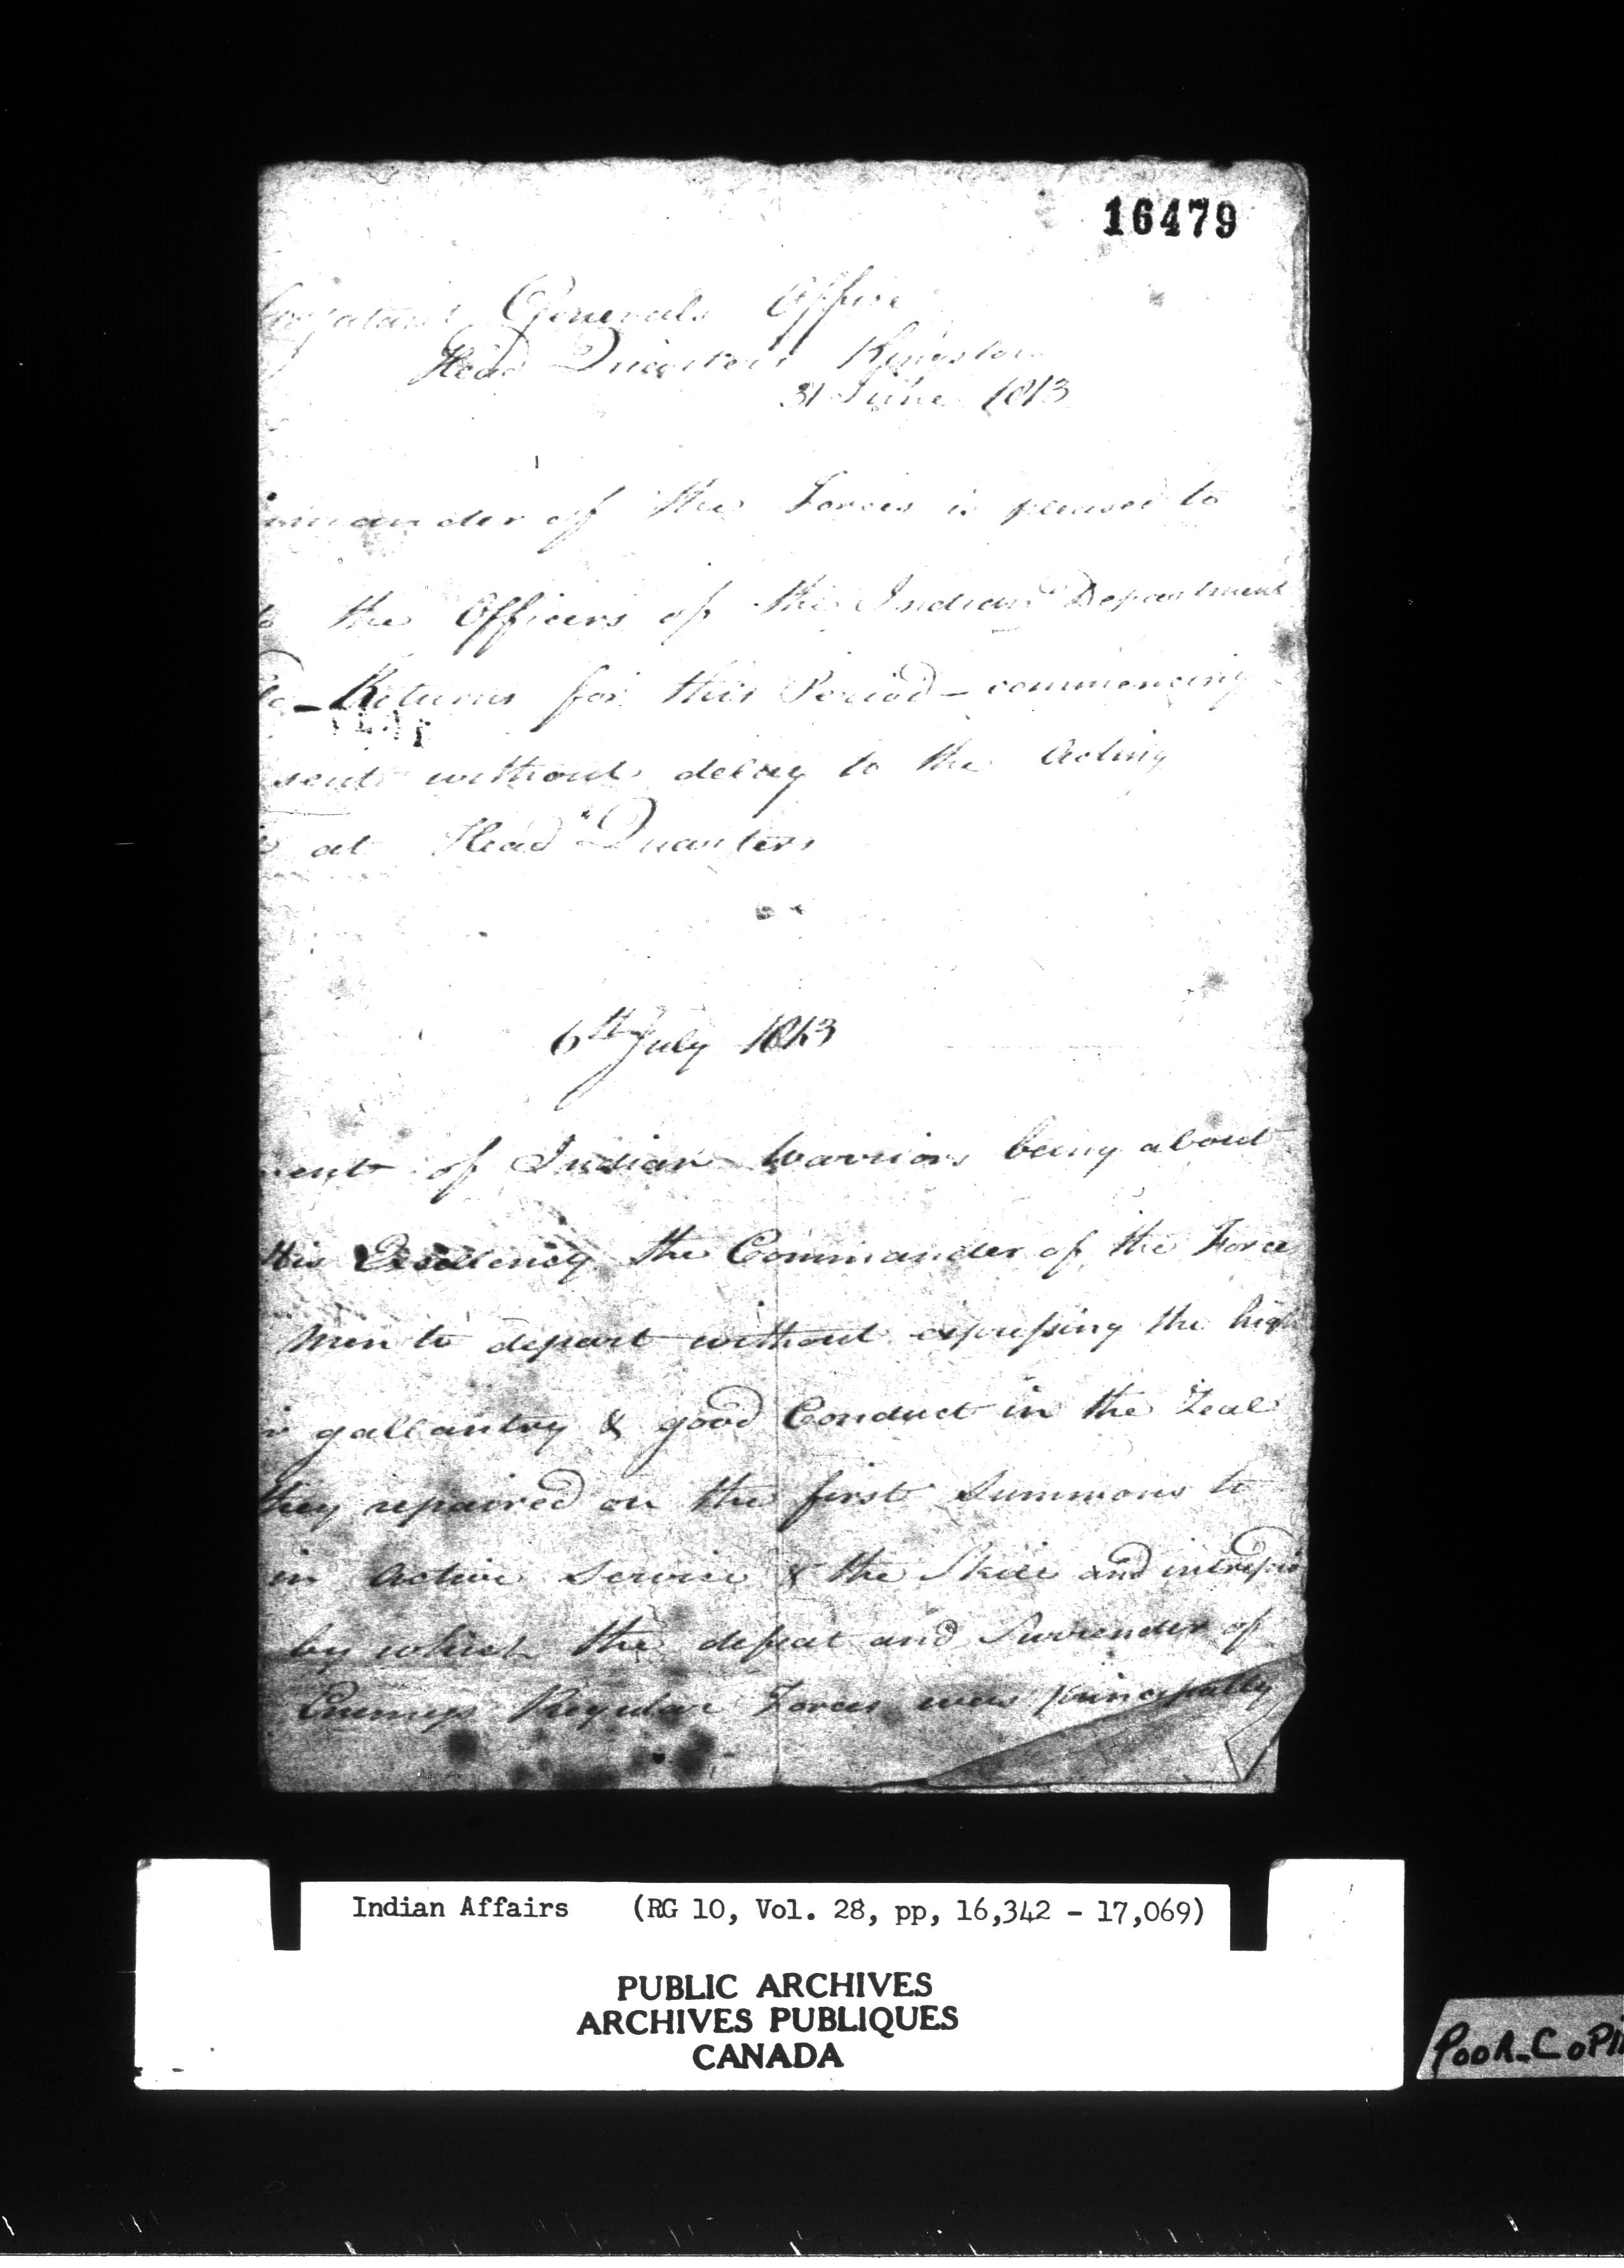 16479
Generals Office
Head Quarters Kingston
31 June 1813
mander of the Forces is pleased to
the Officers of the Indian Department
Returns for this Period - commencing
sent without delay to the Acting
at Head Quarters
6th July 1813
ent of Indian Warriors being about
His Excellency the Commander of the Force
men to depart without expressing the high
gallantry & good Conduct in the Zeal
they repaired on the first Summons to
in Active Service & the Skill and intrepid
by which the defeat and Surrender of
Enemys Regular Forces were principally
Indian Affairs (RG 10, Vol. 28, pp, 16,342 - 17,069)
PUBLIC ARCHIVES
ARCHIVES PUBLIQUES
CANADA
POOR COPI